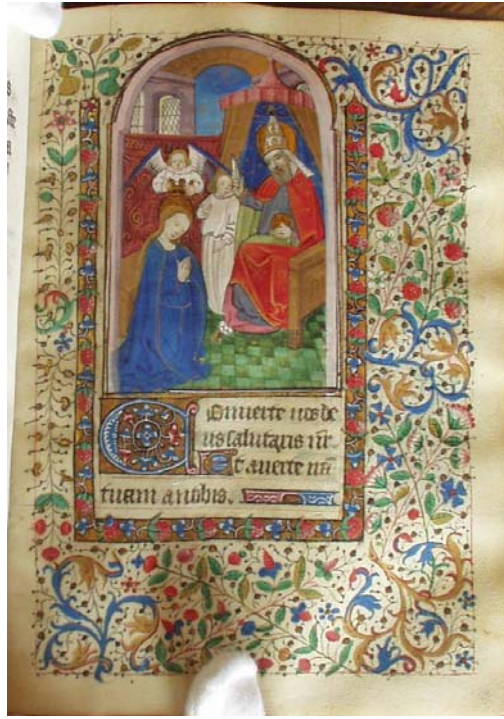 Converte nos de
us salutaris nr̄.
Et averte irā
tuam a nobis.